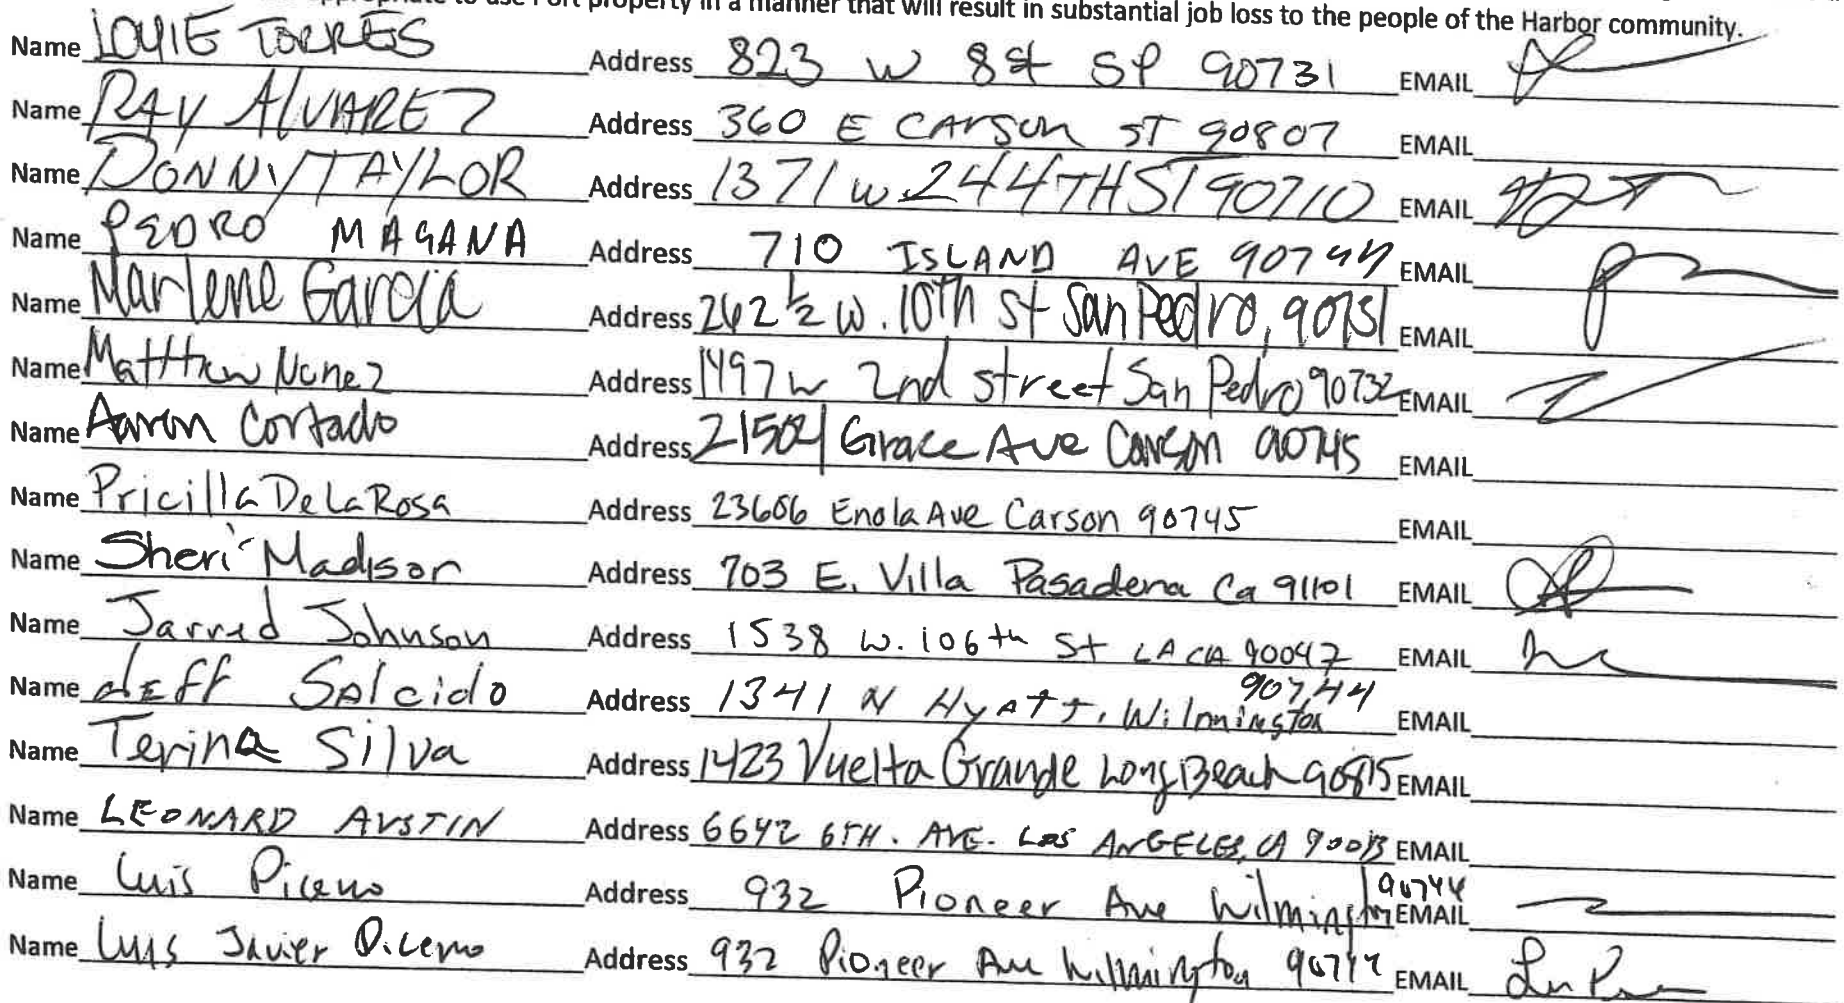 to use Port property in a manner that will result in substantial job loss to the people of the Harbor community.
Name LOUIE TORRES Address 823 W 8St SP 90731 EMAIL
Name RAY AlVAREZ Address 360 E CArson ST 90807 EMAIL
Name DONNY TAYLOR Address 1371 w 244TH ST 90710 EMAIL
Name PEDRO MAGANA Address 710 ISLAND AVE 90744 EMAIL
Name Marlene Garcia Address 262 1/2 W. 10th St San Pedro, 90731 EMAIL
Name Matthew Nunez Address 1497 w 2nd street San Pedro 90732 EMAIL
Name Aaron Cortado Address 21504 Grace Ave Carson 90745 EMAIL
Name Pricilla De La Rosa Address 23606 Enola Ave Carson 90745 EMAIL
Name Sheri Madison Address 703 E. Villa Pasadena Ca 91101 EMAIL
Name Jarred Johnson Address 1538 W. 106th St LA CA 90047 EMAIL
Name JEFF SAlcido Address 1341 N HyATT, Wilmington 90744 EMAIL
Name Terina Silva Address 1423 Vuelta Grande Long Beach 90815 EMAIL
Name LEONARD AUSTIN Address 6642 6TH. AVE. LOS ANGELES, CA EMAIL
Name Luis Piceno Address 932 Pioneer Ave Wilmington 90744 EMAIL
Name Luis Javier Piceno Address 932 Pioneer Ave Wilmington 90744 EMAIL